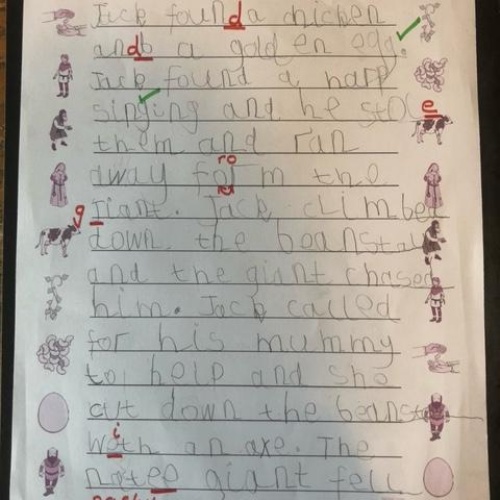 Jack found a chicken
and a golden egg.
Jack found a harp
singing and he stol e
them and ran
away for m the ro
giant. Jack climbed g
down the beansta
and the giant chased
him. Jack called
for his mummy
to help and she
cut down the beansta
with an axe. The i
giant fell